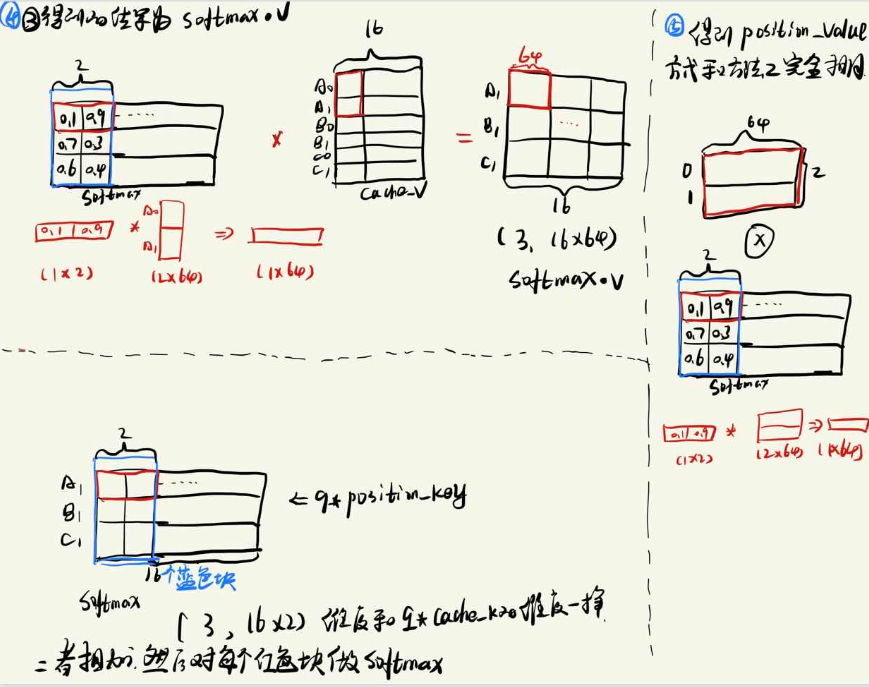 ④ ③得到的结果为 softmax·V
2
0.1 0.9 ······
0.7 0.3
0.6 0.4
Softmax
*
16
A₀
A₁
B₀
B₁
C₀
C₁
Cache_V
=
64
A₁
B₁
C₁
····
16
(3, 16x64)
Softmax·V
0.1 0.9
(1x2)
*
A₀
A₁
(2x64)
⇒
(1x64)
2
A₁
B₁
C₁
·····
⇐ q* position_key
16个蓝色块
Softmax
(3, 16x2) 维度和 q* cache_k的维度一样
二者相加, 然后对每个红色块做 Softmax
⑤ 得到 position_value
方式和方法2完全相同
64
0
1
2
X
2
0.1 0.9 ·····
0.7 0.3
0.6 0.4
Softmax
0.1 0.9 * ⇒
(1x2) (2x64) (1x64)